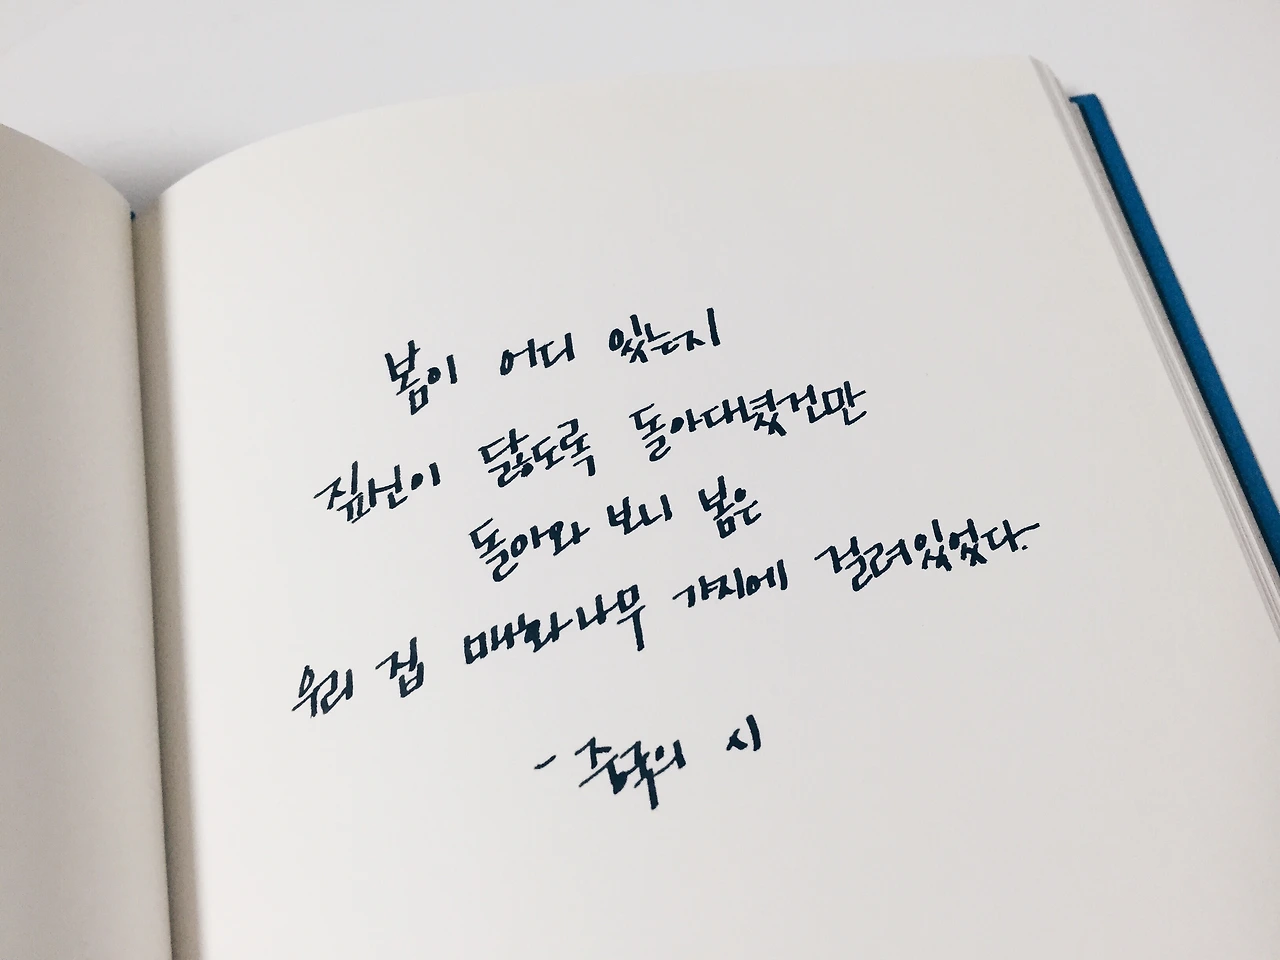 봄이 어디 있는지
짚신이 닳도록 돌아다녔건만
돌아와 보니 봄은
우리 집 매화나무 가지에 걸려있었다.
- 중국의 시